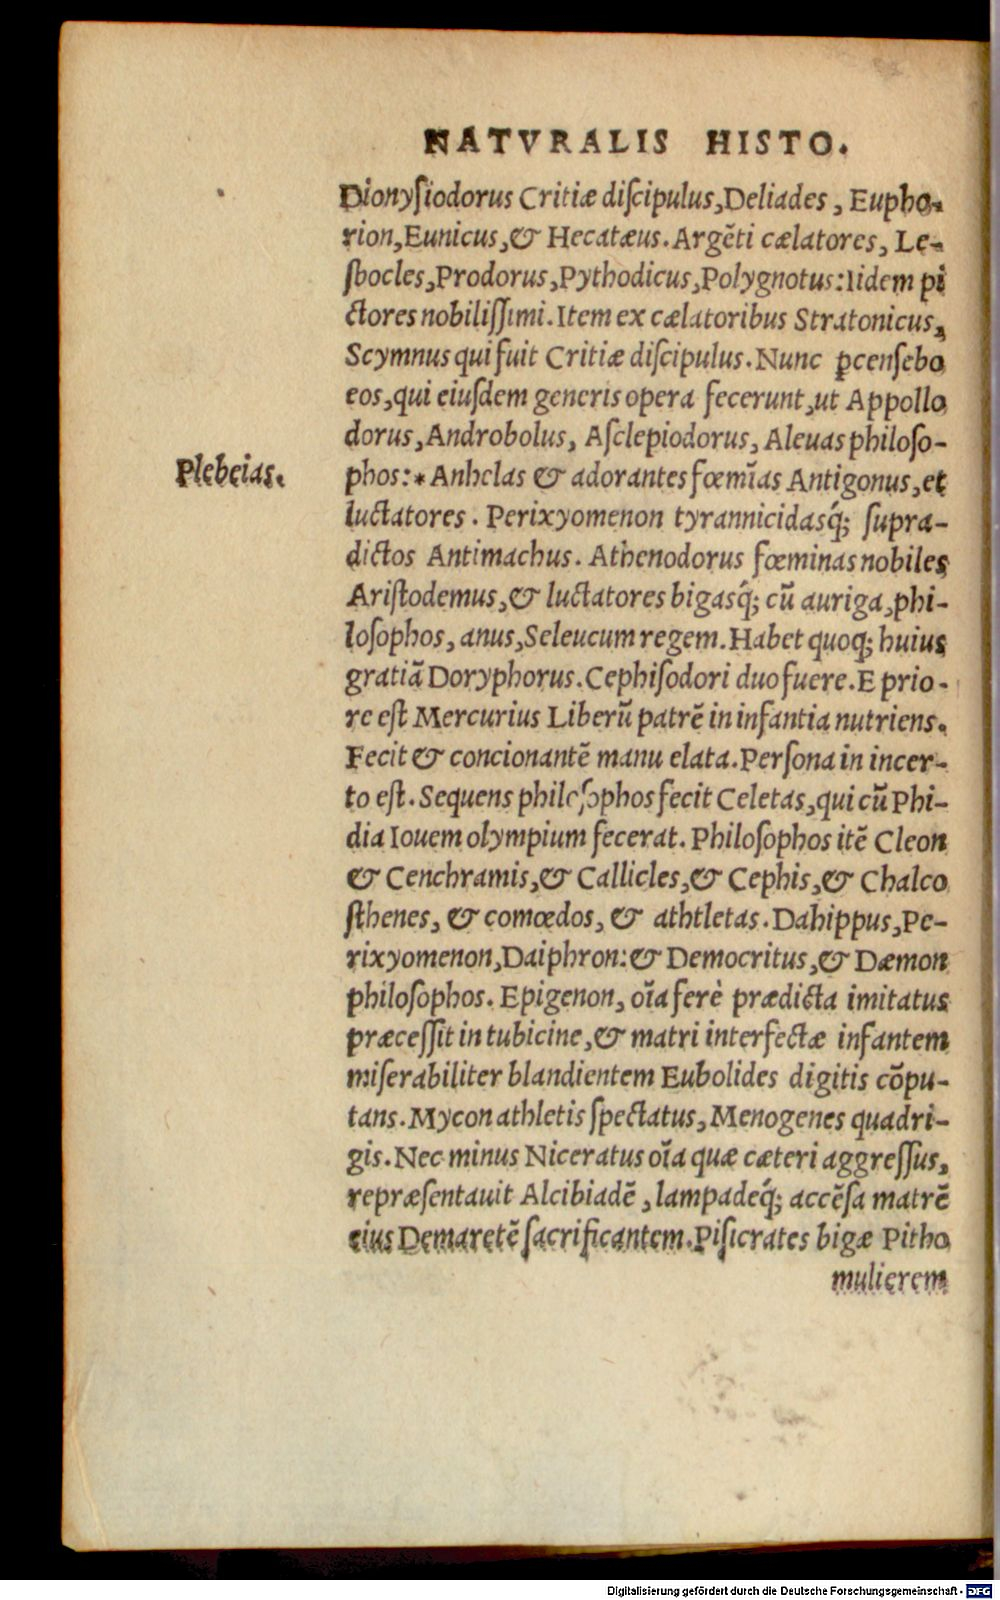 NATVRALIS HISTO.
Dionyſiodorus Critiæ diſcipulus, Deliades, Eupho-
rion, Eunicus, & Hecatæus. Argẽti cælatores, Le-
ſbocles, Prodorus, Pythodicus, Polygnotus: Iidem pi
ctores nobiliſſimi. Item ex cælatoribus Stratonicus,
Scymnus qui fuit Critiæ diſcipulus. Nunc ꝑcenſebo
eos, qui eiuſdem generis opera fecerunt, ut Appollo
dorus, Androbolus, Aſclepiodorus, Aleuas philoſo-
Plebeias.
phos: * Anhelas & adorantes fœmĩas Antigonus, et
luctatores. Perixyomenon tyrannicidasq́; ſupra-
dictos Antimachus. Athenodorus fœminas nobiles
Ariſtodemus, & luctatores bigasq́; cũ auriga, phi-
loſophos, anus, Seleucum regem. Habet quoq; huius
gratiã Doryphorus. Cephiſodori duo fuere. E prio-
re eſt Mercurius Liberũ patrẽ in infantia nutriens.
Fecit & concionantẽ manu elata. Perſona in incer-
to eſt. Sequens philoſophos fecit Celetas, qui cũ Phi-
dia Iouem olympium fecerat. Philoſophos itẽ Cleon
& Cenchramis, & Callicles, & Cephis, & Chalco
ſthenes, & comœdos, & athtletas. Dahippus, Pe-
rixyomenon, Daiphron: & Democritus, & Dæmon
philoſophos. Epigenon, oĩa ferè prædicta imitatus
præceſſit in tubicine, & matri interfectæ infantem
miſerabiliter blandientem Eubolides digitis cõpu-
tans. Mycon athletis ſpectatus, Menogenes quadri-
gis. Nec minus Niceratus oĩa quæ cæteri aggreſſus,
repræſentauit Alcibiadẽ, lampadeq́; accẽſa matrẽ
eius Demaretẽ ſacrificantem. Piſicrates bigæ Pitho
mulierem
Digitalisierung gefördert durch die Deutsche Forschungsgemeinschaft - DFG